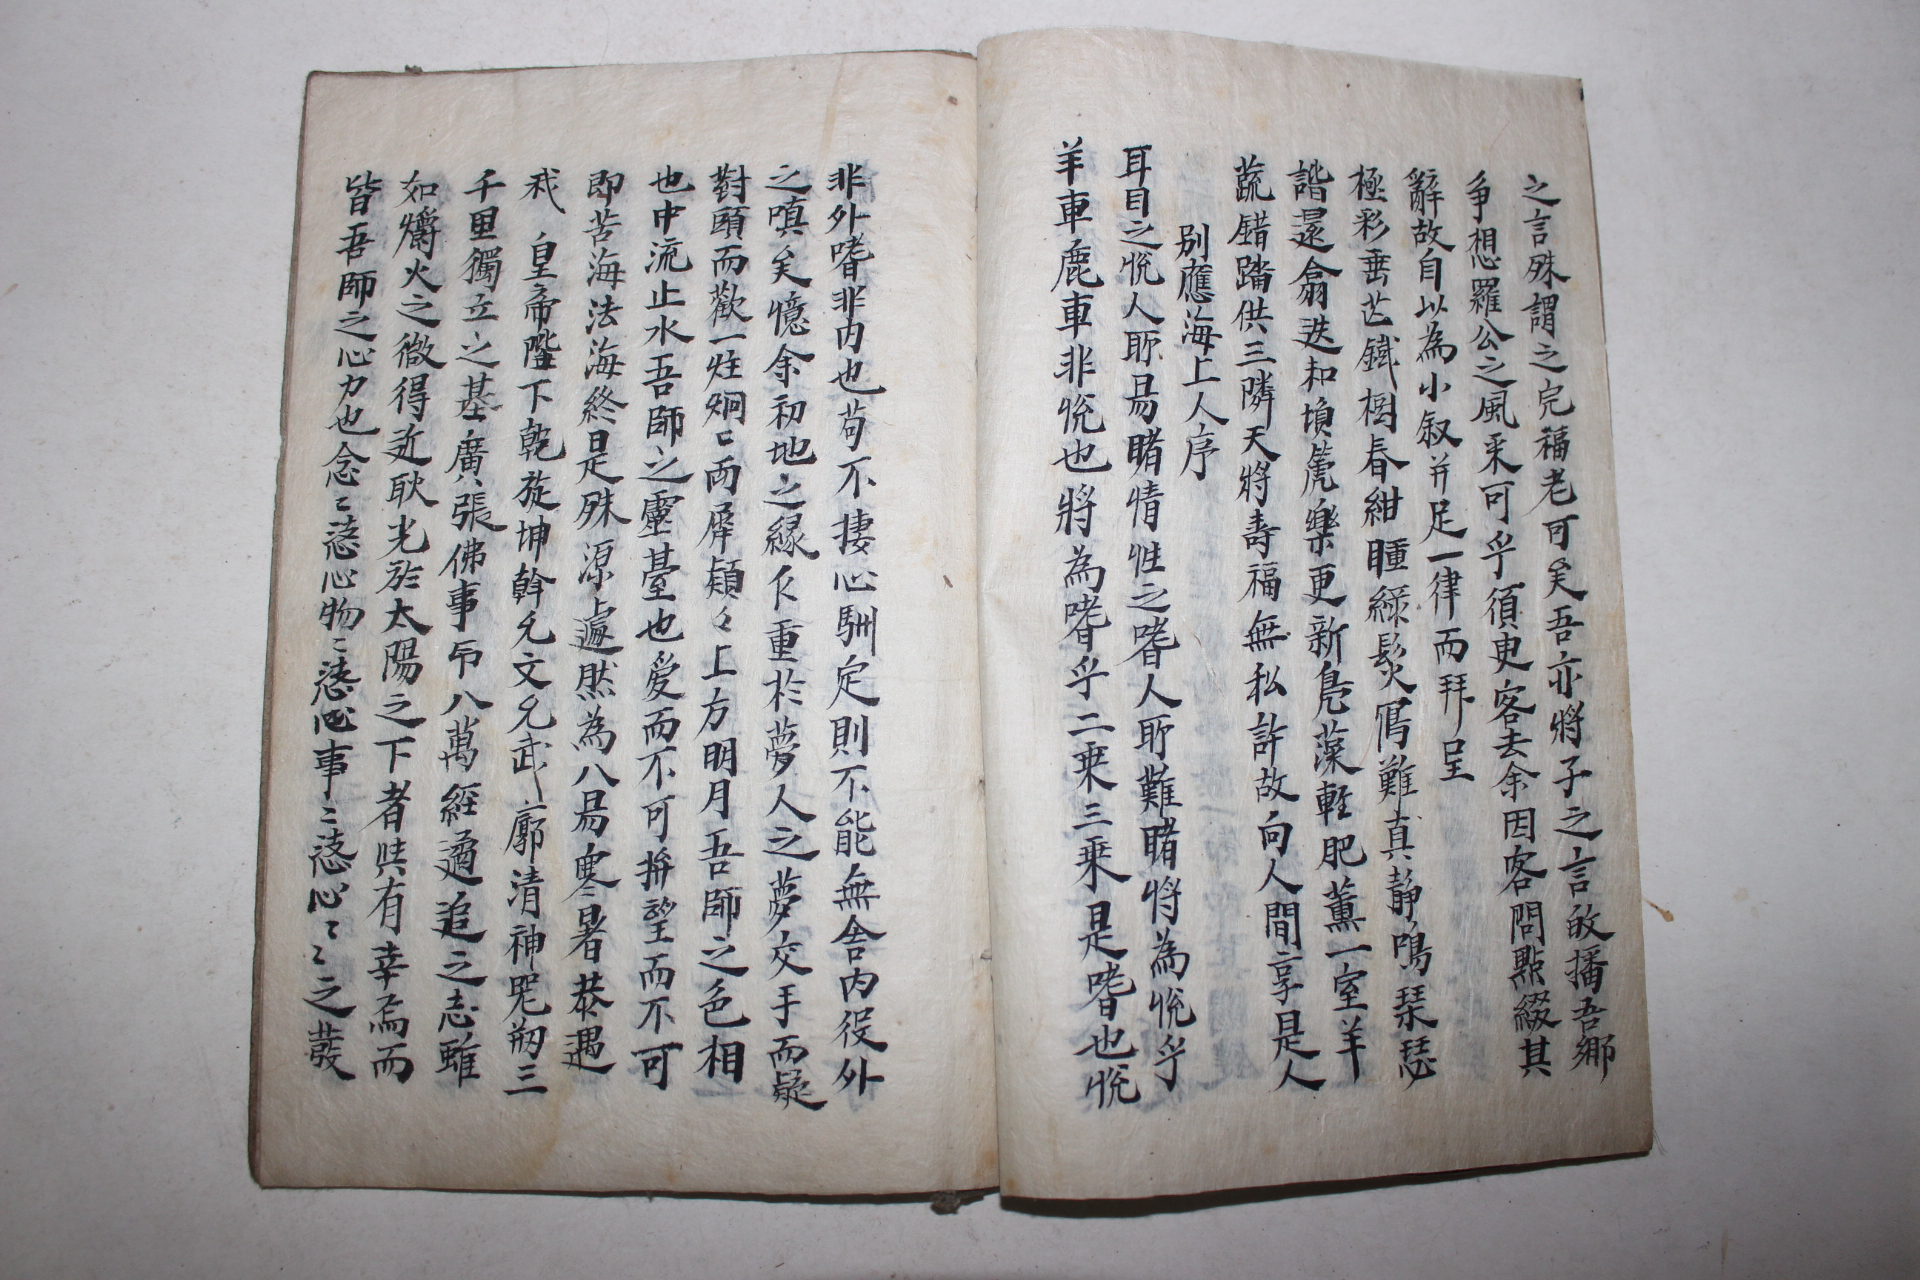 之言殊謂之完福老可矣吾亦將子之言的播吾鄉
爭想羅公之風采可乎須臾客去余因客問點綴其
辭故自以為小叙并足一律而拜呈
極彩垂芒鐵樹春紺瞳綠鬂寫難真靜鳴琴瑟
諧還翕迭和塤篪樂更新鳧藻輕肥薰一室羊
蔬錯踏供三隣天將壽福無私許故向人間享是人
別應海上人序
耳目之悅人所易睹情性之嗜人所難睹將為悅乎
羊車鹿車非悅也將為嗜乎二乘三乘是嗜也悅
非外嗜非內也苟不捿心馴定則不能無舍內役外
之嗔矣憶余初地之緣仄重於夢人之夢交手而疑
對頤而歡一炷炯〻兩犀頍〻上方明月吾師之色相
也中流止水吾師之靈臺也愛而不可拚望而不可
即苦海法海終是殊源上遍然為八昜寒暑恭遇
我 皇帝陛下乾旋坤斡允文允武廓清神咒刱三
千里獨立之基廣張佛事帀八萬經適追之志雖
如爝火之微得近耿光於太陽之下者㒷有幸焉而
皆吾師之心力也念〻慈心物〻慈心事〻慈心〻〻之發